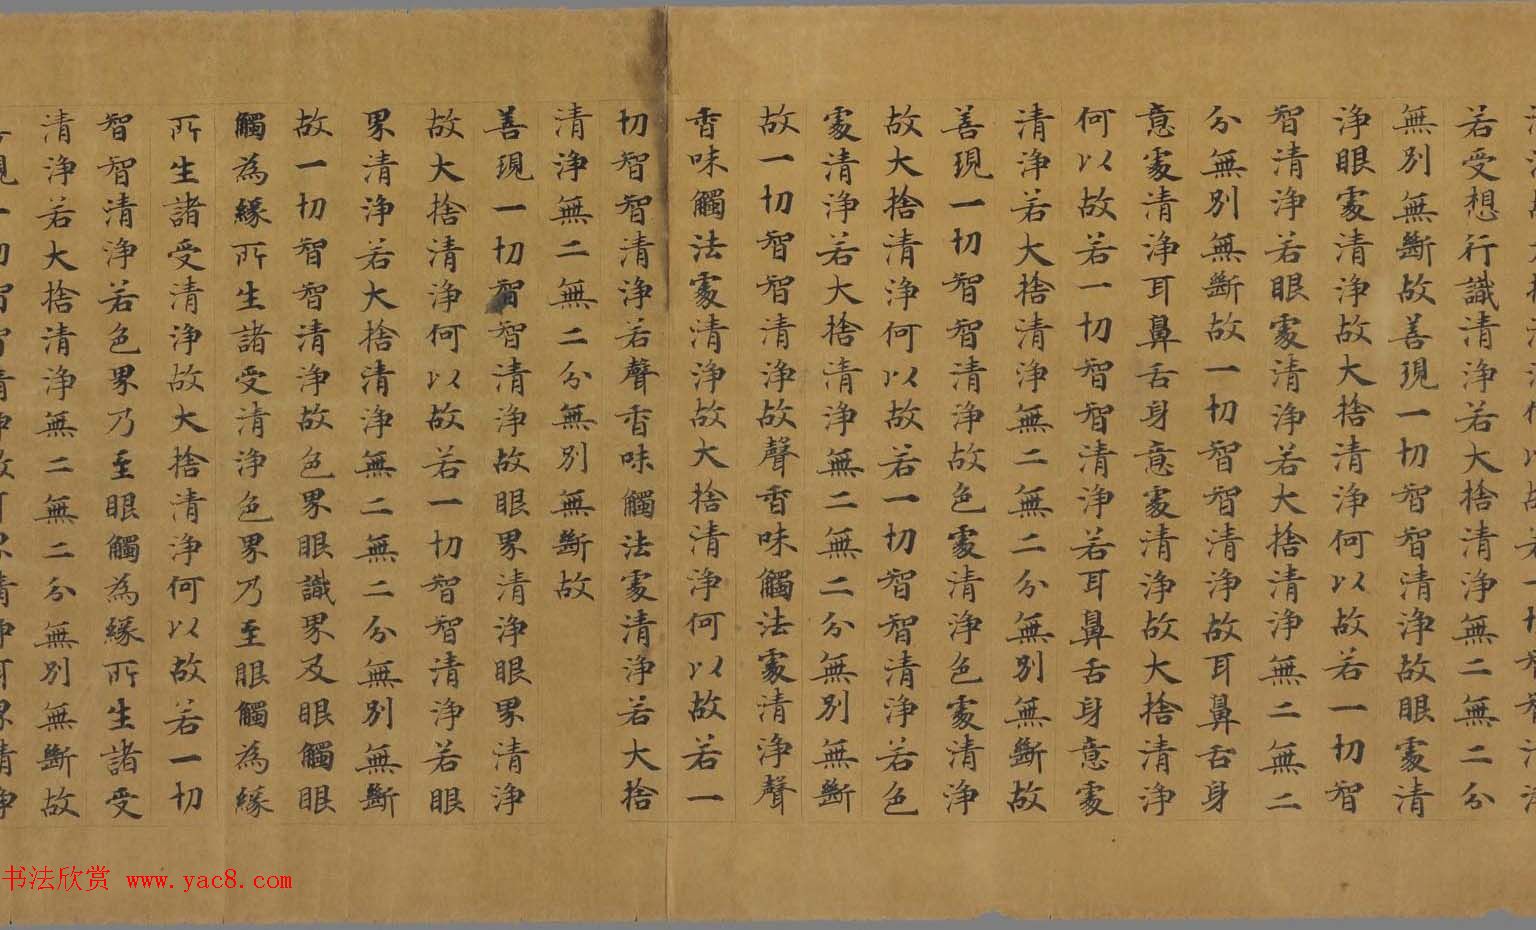 若受想行識清淨若大捨清淨無二無二分
無別無斷故善現一切智智清淨故眼處清
淨眼處清淨故大捨清淨何以故若一切智
智清淨若眼處清淨若大捨清淨無二無二
分無別無斷故一切智智清淨故耳鼻舌身
意處清淨耳鼻舌身意處清淨故大捨清淨
何以故若一切智智清淨若耳鼻舌身意處
清淨若大捨清淨無二無二分無別無斷故
善現一切智智清淨故色處清淨色處清淨
故大捨清淨何以故若一切智智清淨若色
處清淨若大捨清淨無二無二分無別無斷
故一切智智清淨故聲香味觸法處清淨聲
香味觸法處清淨故大捨清淨何以故若一
切智智清淨若聲香味觸法處清淨若大捨
清淨無二無二分無別無斷故
善現一切智智清淨故眼界清淨眼界清淨
故大捨清淨何以故若一切智智清淨若眼
界清淨若大捨清淨無二無二分無別無斷
故一切智智清淨故色界眼識界及眼觸眼
觸為緣所生諸受清淨色界乃至眼觸為緣
所生諸受清淨故大捨清淨何以故若一切
智智清淨若色界乃至眼觸為緣所生諸受
清淨若大捨清淨無二無二分無別無斷故
书法欣赏 www.yac8.com